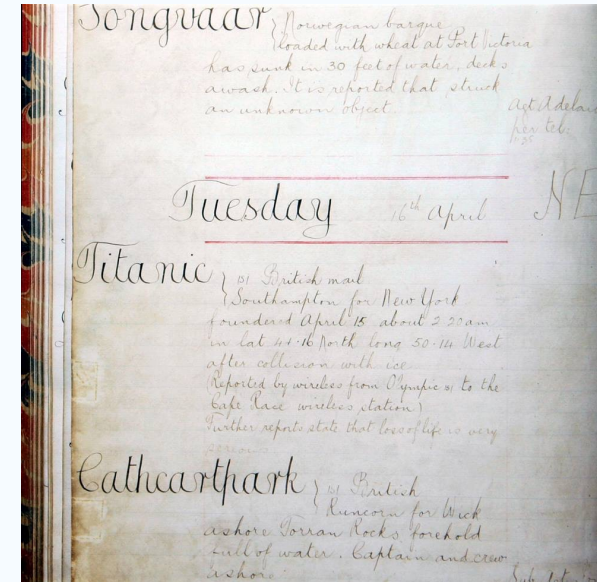 Songvaar } Norwegian barque
loaded with wheat at Port Victoria
has sunk in 30 feet of water, decks
awash. It is reported that struck
an unknown object.
Agt Adelai
per tel.
Tuesday 16th April NE
Titanic } (s) British mail
Southampton for New York
foundered April 15 about 2 20am
in lat 41·16 North long 50·14 West
after collision with ice
(Reported by wireless from Olympic (s) to the
Cape Race wireless station)
Further reports state that loss of life is very
serious
Cathcartpark } (s) British
Runcorn for Wick
ashore Torran Rocks, forehold
full of water. Captain and crew
ashore